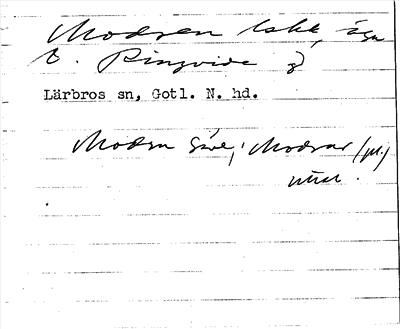 Modren lskt, äga
t. Ringvide g
Lärbros sn, Gotl. N. hd.
Modrn Säve; Modrar (pl.)
uttal.